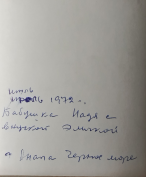 июль
июль 1972 г.
Бабушка Надя с
внучкой Эммой
г. Анапа Черное море